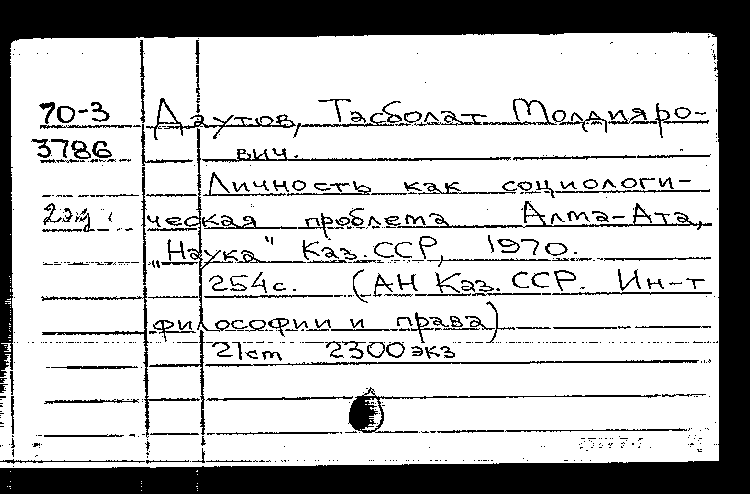 70-3 Даутов, Тасболат Молдияро-
3786 вич.
Личность как социологи-
2 экз. ческая проблема Алма-Ата,
"Наука" Каз. ССР, 1970.
254 с. (АН Каз. ССР. Ин-т
философии и права)
21 cm 2300 экз